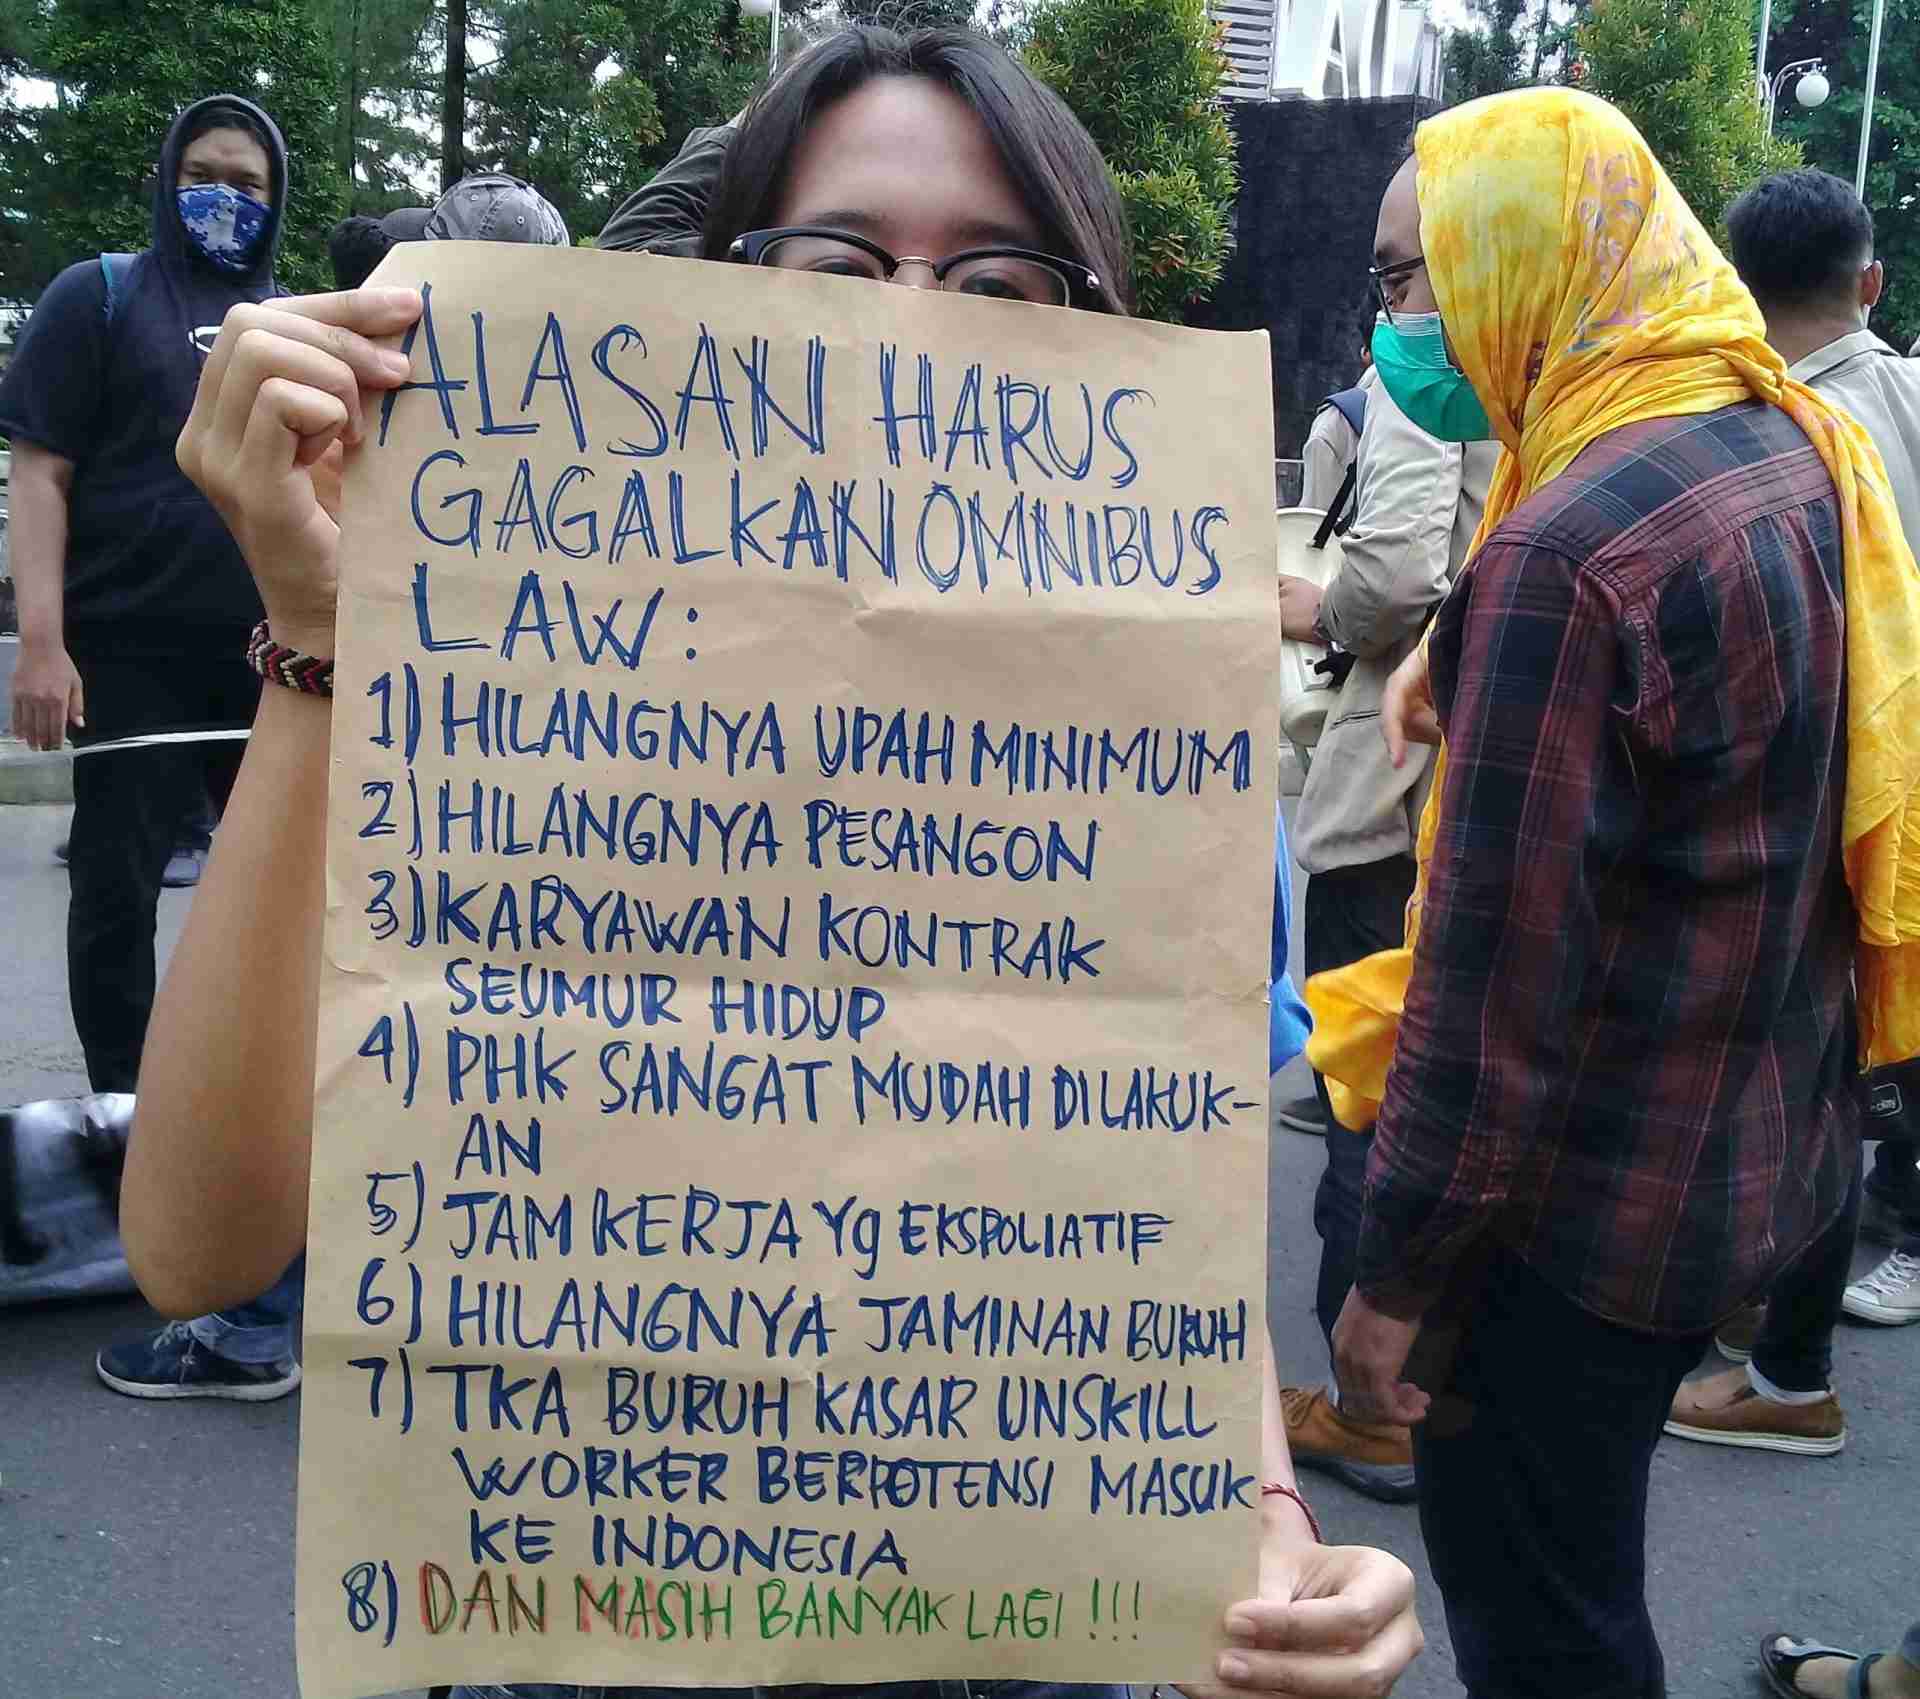 ALASAN HARUS
GAGALKAN OMNIBUS
LAW :
1) HILANGNYA UPAH MINIMUM
2) HILANGNYA PESANGON
3) KARYAWAN KONTRAK
SEUMUR HIDUP
4) PHK SANGAT MUDAH DILAKUK-
AN
5) JAM KERJA Yg EKSPOLIATIF
6) HILANGNYA JAMINAN BURUH
7) TKA BURUH KASAR UNSKILL
WORKER BERPOTENSI MASUK
KE INDONESIA
8) DAN MASIH BANYAK LAGI !!!